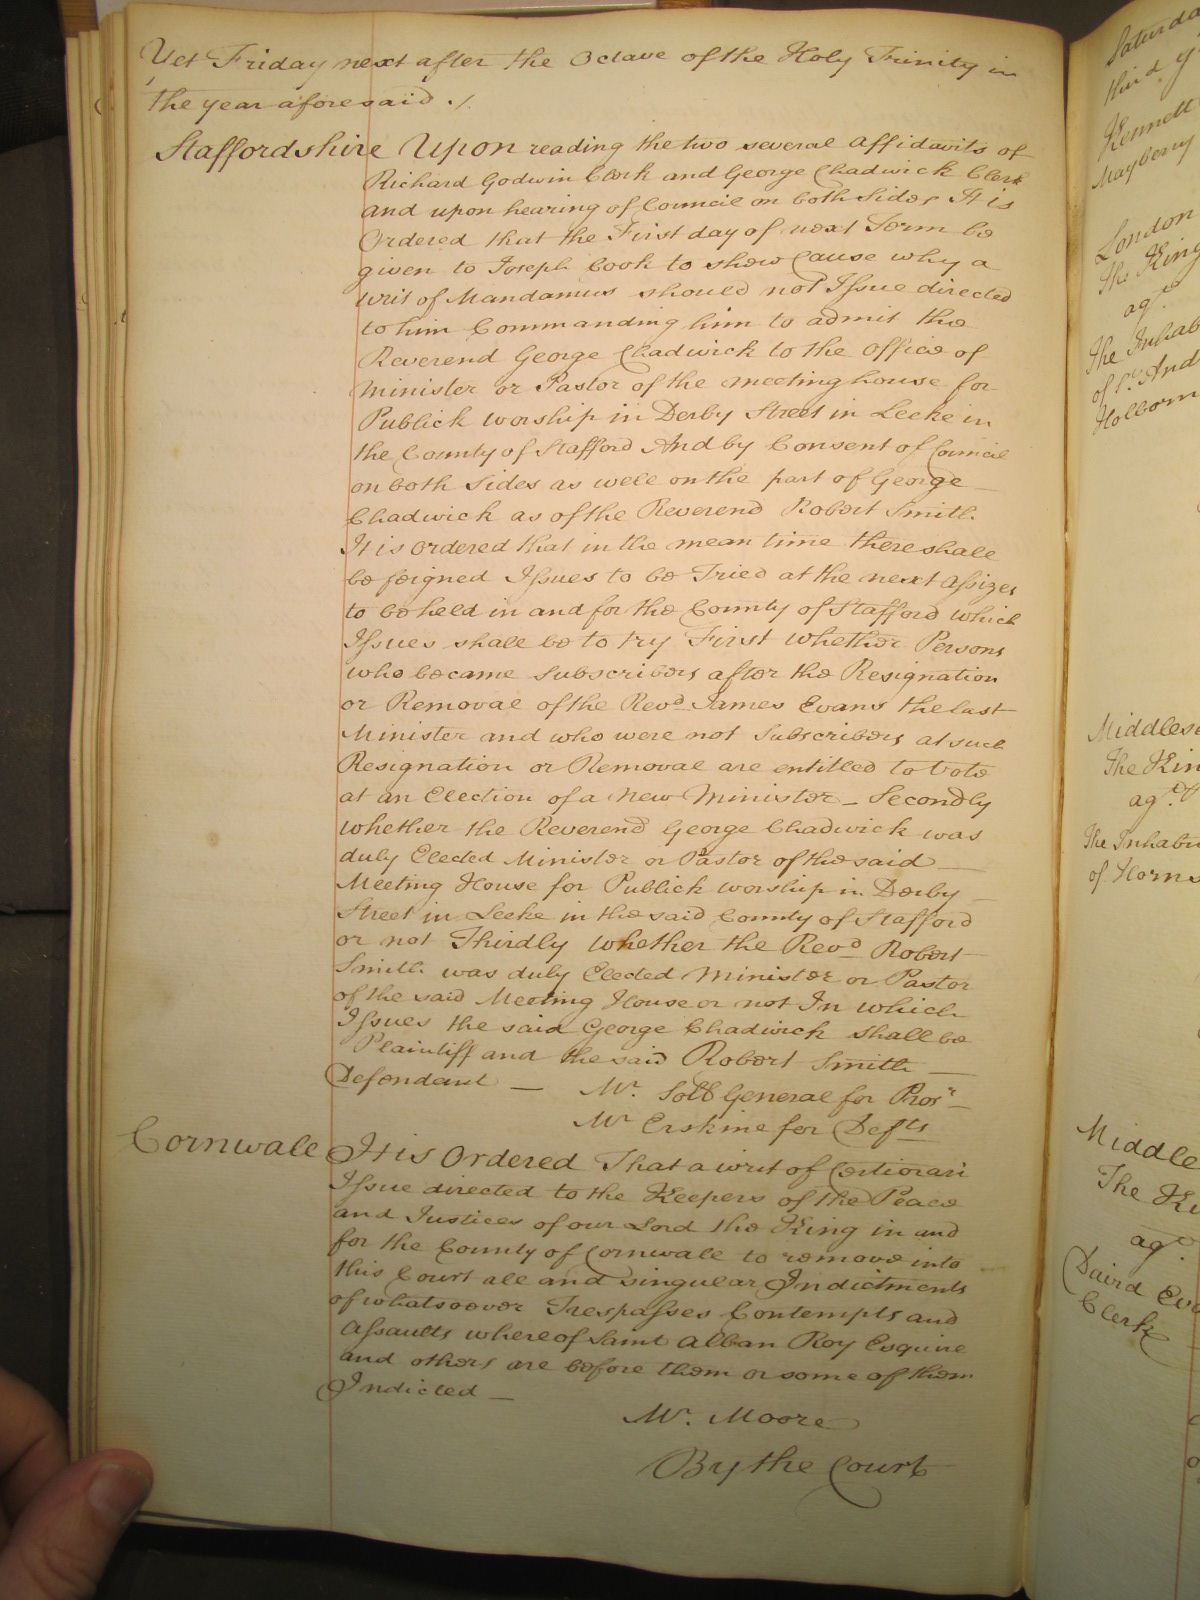 Yet Friday next after the Octave of the Holy Trinity in
the year aforesaid ./.
Staffordshire Upon reading the two several affidavits of
Richard Godwin Clerk and George Chadwick Clerk
and upon hearing of Council on both Sides It is
Ordered that the First day of next Term be
given to Joseph Cook to shew Cause why a
writ of Mandamus should not Issue directed
to him Commanding him to admit the
Reverend George Chadwick to the Office of
Minister or Pastor of the meeting house for
Publick worship in Derby Street in Leeke in
the County of Stafford And by Consent of Council
on both sides as well on the part of George
Chadwick as of the Reverend Robert Smith
It is Ordered that in the mean time there shall
be feigned Issues to be Tried at the next Assizes
to be held in and for the County of Stafford which
Issues shall be to try First whether Persons
who became Subscribers after the Resignation
or Removal of the Revd James Evans the last
Minister and who were not Subscribers at such
Resignation or Removal are entitled to Vote
at an Election of a New Minister – Secondly
whether the Reverend George Chadwick was
duly Elected Minister or Pastor of the said
Meeting House for Publick worship in Derby
Street in Leeke in the said County of Stafford
or not Thirdly whether the Revd Robert
Smith was duly Elected Minister or Pastor
of the said Meeting House or not In which
Issues the said George Chadwick shall be
Plaintiff and the said Robert Smith
Defendant — Mr. Soll General for Prosr
Mr Erskine for Defts
Cornwall It is Ordered That a writ of Certiorari
Issue directed to the Keepers of the Peace
and Justices of our Lord the King in and
for the County of Cornwall to remove into
this Court all and singular Indictments
of whatsoever Trespasses Contempts and
Assaults whereof Saint Alban Roy Esquire
and others are before them or some of them
Indicted —
Mr. Moore
By the Court
third
Kennett
Mayberry
London
The King
agt
The Inhab
of St And
Holborn
Middlese
The Kin
agt
The Inhabi
of Horns
Middle
The Ki
agt
David Eva
Clerk